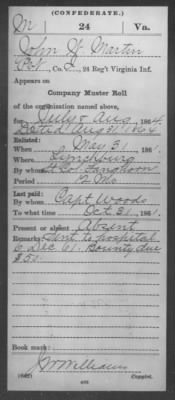 (CONFEDERATE.)
M 24 Va.
John W. Martin
Pvt, Co. , 24 Reg't Virginia Inf.
Appears on
Company Muster Roll
of the organization named above,
for July & Aug, 1864.
Dated Aug 31, 1864
Enlisted:
When May 31, 1861.
Where Lynchburg
By whom Lt Col Langhorn
Period 12 Mo
Last paid:
By whom Capt Woods
To what time Oct 31, 1861.
Present or absent Absent
Remarks: Sent to hospital
6 Dec 61. Bounty due
$50.
Book mark:
Williams
(642) Copyist.